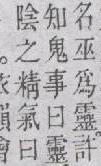 名巫爲靈許
知鬼事曰靈
陰之精氣曰